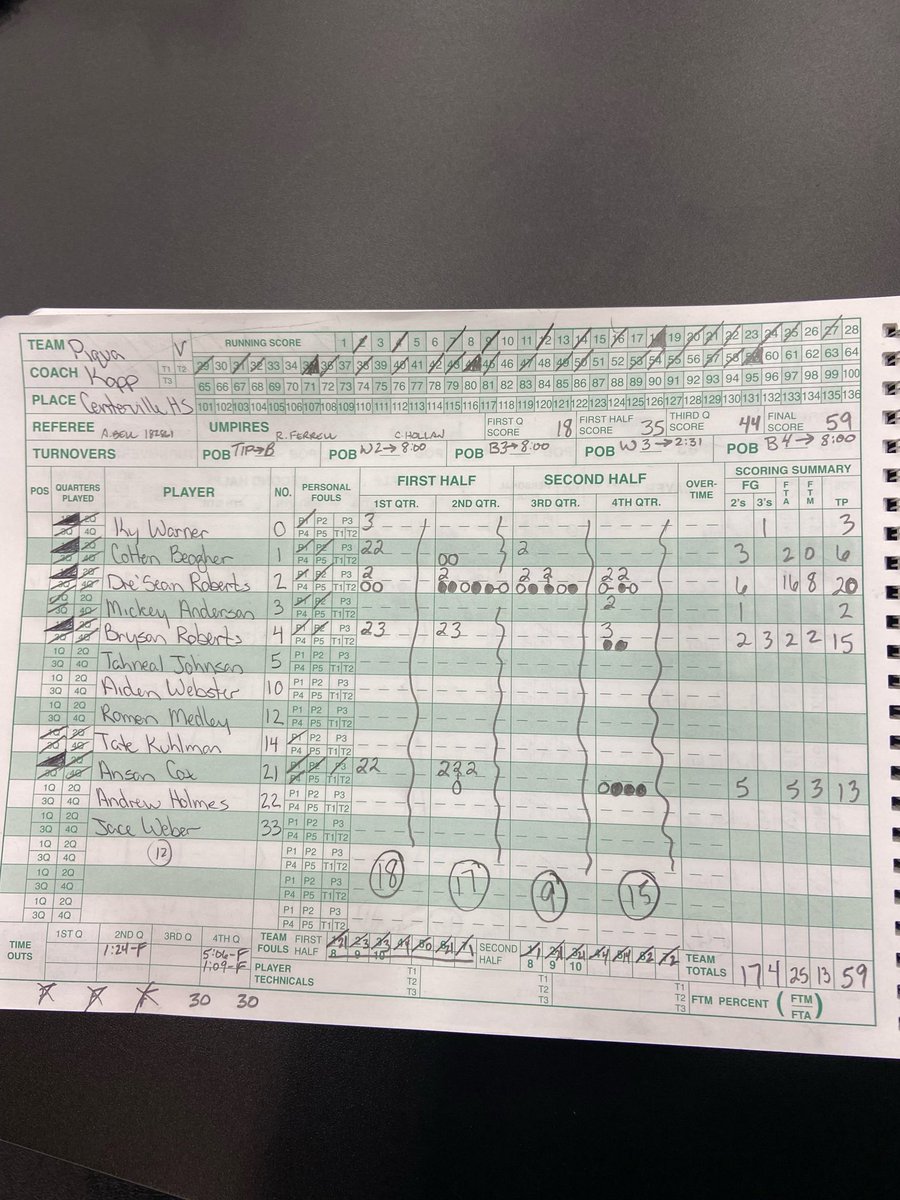 TEAM Piqua V RUNNING SCORE 1 2 3 4 5 6 7 8 9 10 11 12 13 14 15 16 17 18 19 20 21 22 23 24 25 26 27 28
T1 T2 29 30 31 32 33 34 35 36 37 38 39 40 41 42 43 44 45 46 47 48 49 50 51 52 53 54 55 56 57 58 59 60 61 62 63 64
COACH Kopp T3 65 66 67 68 69 70 71 72 73 74 75 76 77 78 79 80 81 82 83 84 85 86 87 88 89 90 91 92 93 94 95 96 97 98 99 100
PLACE Centerville HS 101 102 103 104 105 106 107 108 109 110 111 112 113 114 115 116 117 118 119 120 121 122 123 124 125 126 127 128 129 130 131 132 133 134 135 136
REFEREE A. BELL UMPIRES R. FERRELL C. HOLLAN FIRST Q SCORE 18 FIRST HALF SCORE 35 THIRD Q SCORE 44 FINAL SCORE 59
TURNOVERS POB TIP→B POB W2→8:00 POB B3→8:00 POB W3→2:31 POB B4→8:00
POS QUARTERS PLAYED PLAYER NO. PERSONAL FOULS FIRST HALF SECOND HALF OVER-TIME SCORING SUMMARY
1ST QTR. 2ND QTR. 3RD QTR. 4TH QTR. FG 2's 3's FTA FTM TP
1Q 2Q 3Q 4Q Ky Warner 0 P1 P2 P3 P4 P5 T1 T2 3 1 3
1Q 2Q 3Q 4Q Colten Beougher 1 P1 P2 P3 P4 P5 T1 T2 22 2 3 2 0 6
1Q 2Q 3Q 4Q Dre'Sean Roberts 2 P1 P2 P3 P4 P5 T1 T2 2 2 2 2 22 6 16 8 20
1Q 2Q 3Q 4Q Mickey Anderson 3 P1 P2 P3 P4 P5 T1 T2 2 2
1Q 2Q 3Q 4Q Bryson Roberts 4 P1 P2 P3 P4 P5 T1 T2 23 23 3 2 3 2 2 15
1Q 2Q 3Q 4Q Tahneal Johnson 5 P1 P2 P3 P4 P5 T1 T2
1Q 2Q 3Q 4Q Aiden Webster 10 P1 P2 P3 P4 P5 T1 T2
1Q 2Q 3Q 4Q Romen Medley 12 P1 P2 P3 P4 P5 T1 T2
1Q 2Q 3Q 4Q Tate Kuhlman 14 P1 P2 P3 P4 P5 T1 T2
1Q 2Q 3Q 4Q Anson Cox 21 P1 P2 P3 P4 P5 T1 T2 22 222 5 5 3 13
1Q 2Q 3Q 4Q Andrew Holmes 22 P1 P2 P3 P4 P5 T1 T2
1Q 2Q 3Q 4Q Jace Weber 33 P1 P2 P3 P4 P5 T1 T2
1Q 2Q 3Q 4Q 12 P1 P2 P3 P4 P5 T1 T2
1Q 2Q 3Q 4Q P1 P2 P3 P4 P5 T1 T2 18 17 9 15
1Q 2Q 3Q 4Q P1 P2 P3 P4 P5 T1 T2
TIME OUTS 1ST Q 2ND Q 1:24-F 3RD Q 4TH Q 5:06-F 1:09-F
TEAM FOULS FIRST HALF 8 9 10 SECOND HALF 8 9 10 TEAM TOTALS 17 4 25 13 59
PLAYER TECHNICALS T1 T2 T3 T1 T2 T3 T1 T2 T3 FTM PERCENT (FTM FTA)
30 30